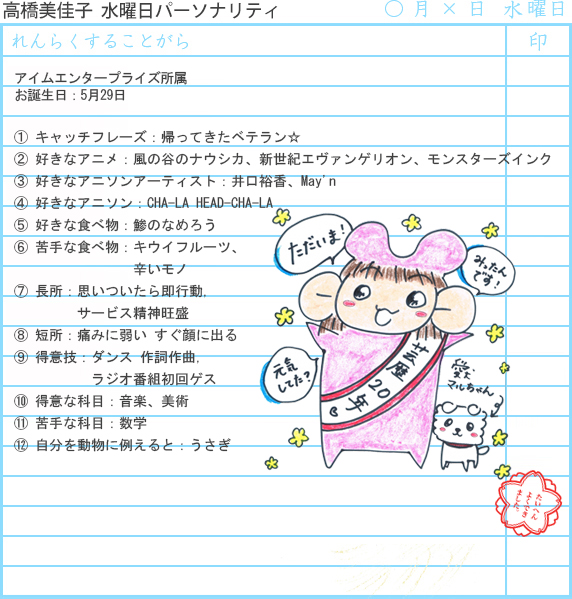 高橋美佳子 水曜日パーソナリティ
〇月×日 水曜日
れんらくすることがら
印
アイムエンタープライズ所属
お誕生日：5月29日
① キャッチフレーズ：帰ってきたベテラン☆
② 好きなアニメ：風の谷のナウシカ、新世紀エヴァンゲリオン、モンスターズインク
③ 好きなアニソンアーティスト：井口裕香、May'n
④ 好きなアニソン：CHA-LA HEAD-CHA-LA
⑤ 好きな食べ物：鯵のなめろう
⑥ 苦手な食べ物：キウイフルーツ、
辛いモノ
⑦ 長所：思いついたら即行動、
サービス精神旺盛
⑧ 短所：痛みに弱い すぐ顔に出る
⑨ 得意技：ダンス 作詞作曲、
ラジオ番組初回ゲス
⑩ 得意な科目：音楽、美術
⑪ 苦手な科目：数学
⑫ 自分を動物に例えると：うさぎ
ただいま！
みったん
です！
元気
してた？
芸歴20年
愛犬
マルちゃん
たいへん
よくでき
ました